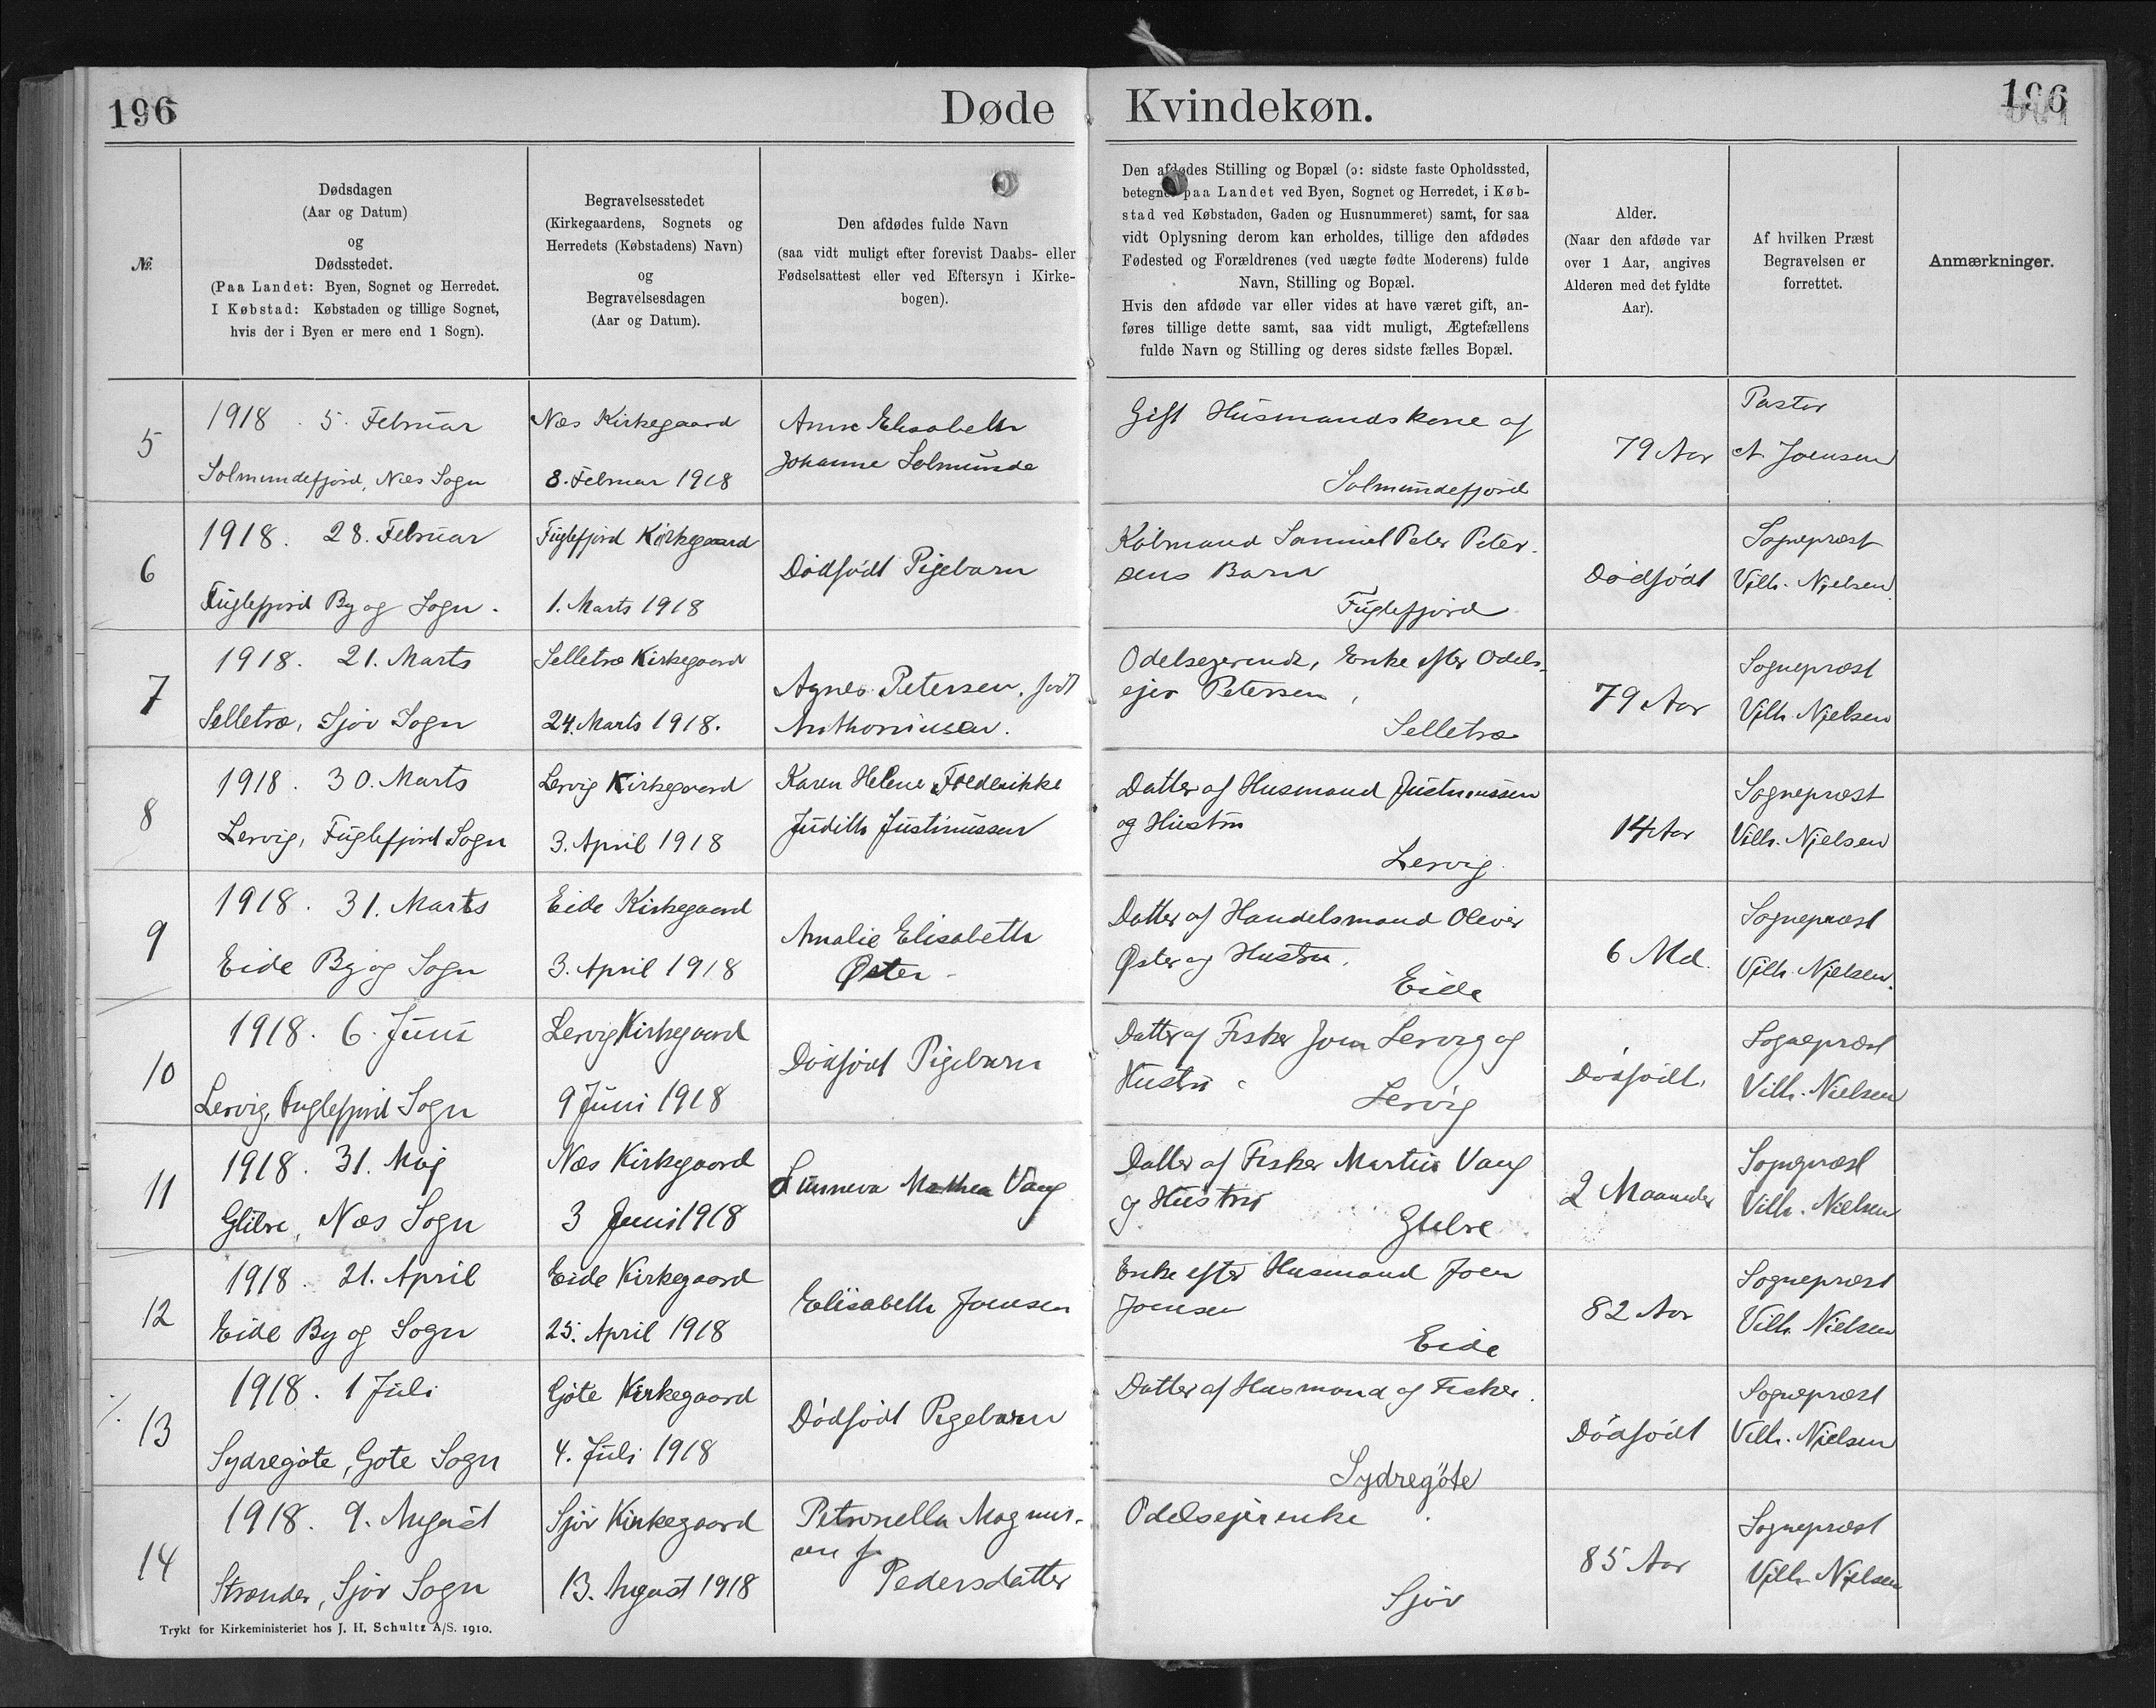 196
Døde Kvindekøn.
196
№
Dødsdagen
(Aar og Datum)
og
Dødsstedet.
(Paa Landet: Byen, Sognet og Herredet.
I Købstad: Købstaden og tillige Sognet,
hvis der i Byen er mere end 1 Sogn).
Begravelsesstedet
(Kirkegaardens, Sognets og
Herredets (Købstadens) Navn)
og
Begravelsesdagen
(Aar og Datum).
Den afdødes fulde Navn
(saa vidt muligt efter forevist Daabs- eller
Fødselsattest eller ved Eftersyn i Kirke-
bogen).
Den afdødes Stilling og Bopæl (ɔ: sidste faste Opholdssted,
betegnet paa Landet ved Byen, Sognet og Herredet, i Køb-
stad ved Købstaden, Gaden og Husnummeret) samt, for saa
vidt Oplysning derom kan erholdes, tillige den afdødes
Fødested og Forældrenes (ved uægte fødte Moderens) fulde
Navn, Stilling og Bopæl.
Hvis den afdøde var eller vides at have været gift, an-
føres tillige dette samt, saa vidt muligt, Ægtefællens
fulde Navn og Stilling og deres sidste fælles Bopæl.
Alder.
(Naar den afdøde var
over 1 Aar, angives
Alderen med det fyldte
Aar).
Af hvilken Præst
Begravelsen er
forrettet.
Anmærkninger.
5
1918 . 5. Februar
Solmundefjord, Næs Sogn
Næs Kirkegaard
8. Februar 1918
Anne Elisabeth
Johanne Solmunde
Gift Husmandskone af
Solmundefjord
79 Aar
Pastor
A Joensen
6
1918. 28. Februar
Fuglefjord By og Sogn.
Fuglefjord Kirkegaard
1. Marts 1918
Dødfødt Pigebarn
Købmand Samuel Peter Peter-
sens Barn
Fuglefjord
Dødfødt
Sognepræst
Vilh. Nielsen
7
1918. 21. Marts
Selletræ, Sjov Sogn
Selletræ Kirkegaard
24. Marts 1918.
Agnes Petersen, født
Anthoniusen.
Odelsejerinde, Enke efter Odels-
ejer Petersen,
Selletræ
79 Aar
Sognepræst
Vilh. Nielsen
8
1918. 30. Marts
Lervig, Fuglefjord Sogn
Lervig Kirkegaard
3. April 1918
Karen Helene Frederikke
Judith Justinussen
Datter af Husmand Justinussen
og Hustru
Lervig
14 Aar
Sognepræst
Vilh. Nielsen
9
1918. 31. Marts
Eide By og Sogn
Eide Kirkegaard
3. April 1918
Amalie Elisabeth
Øster
Datter af Handelsmand Oliver
Øster og Hustru.
Eide
6 Md.
Sognepræst
Vilh. Nielsen.
10
1918. 6. Juni
Lervig, Fuglefjord Sogn
Lervig Kirkegaard
9 Juni 1918
Dødfødt Pigebarn
Datter af Fisker Joen Lervig og
Hustru
Lervig
Dødfødt.
Sognepræst
Vilh. Nielsen
11
1918. 31. Maj
Glibre, Næs Sogn
Næs Kirkegaard
3 Juni 1918
Sunneva Mathea Vang
Datter af Fisker Martin Vang
og Hustru
Glibre
2 Maaneder
Sognepræst
Vilh. Nielsen
12
1918. 21. April
Eide By og Sogn
Eide Kirkegaard
25. April 1918
Elisabeth Joensen
Enke efter Husmand Joen
Joensen
Eide
82 Aar
Sognepræst
Vilh. Nielsen
13
1918. 1 Juli
Sydregøte, Gøte Sogn
Gøte Kirkegaard
4. Juli 1918
Dødfødt Pigebarn
Datter af Husmand og Fisker.
Sydregøte
Dødfødt
Sognepræst
Vilh. Nielsen
14
1918. 9. August
Strænder, Sjov Sogn
Sjov Kirkegaard
13. August 1918
Petronella Magnus-
sen f.
Pedersdatter
Odelsejerenke
Sjov
85 Aar
Sognepræst
Vilh. Nielsen
Trykt for Kirkeministeriet hos J. H. Schultz A/S. 1910.